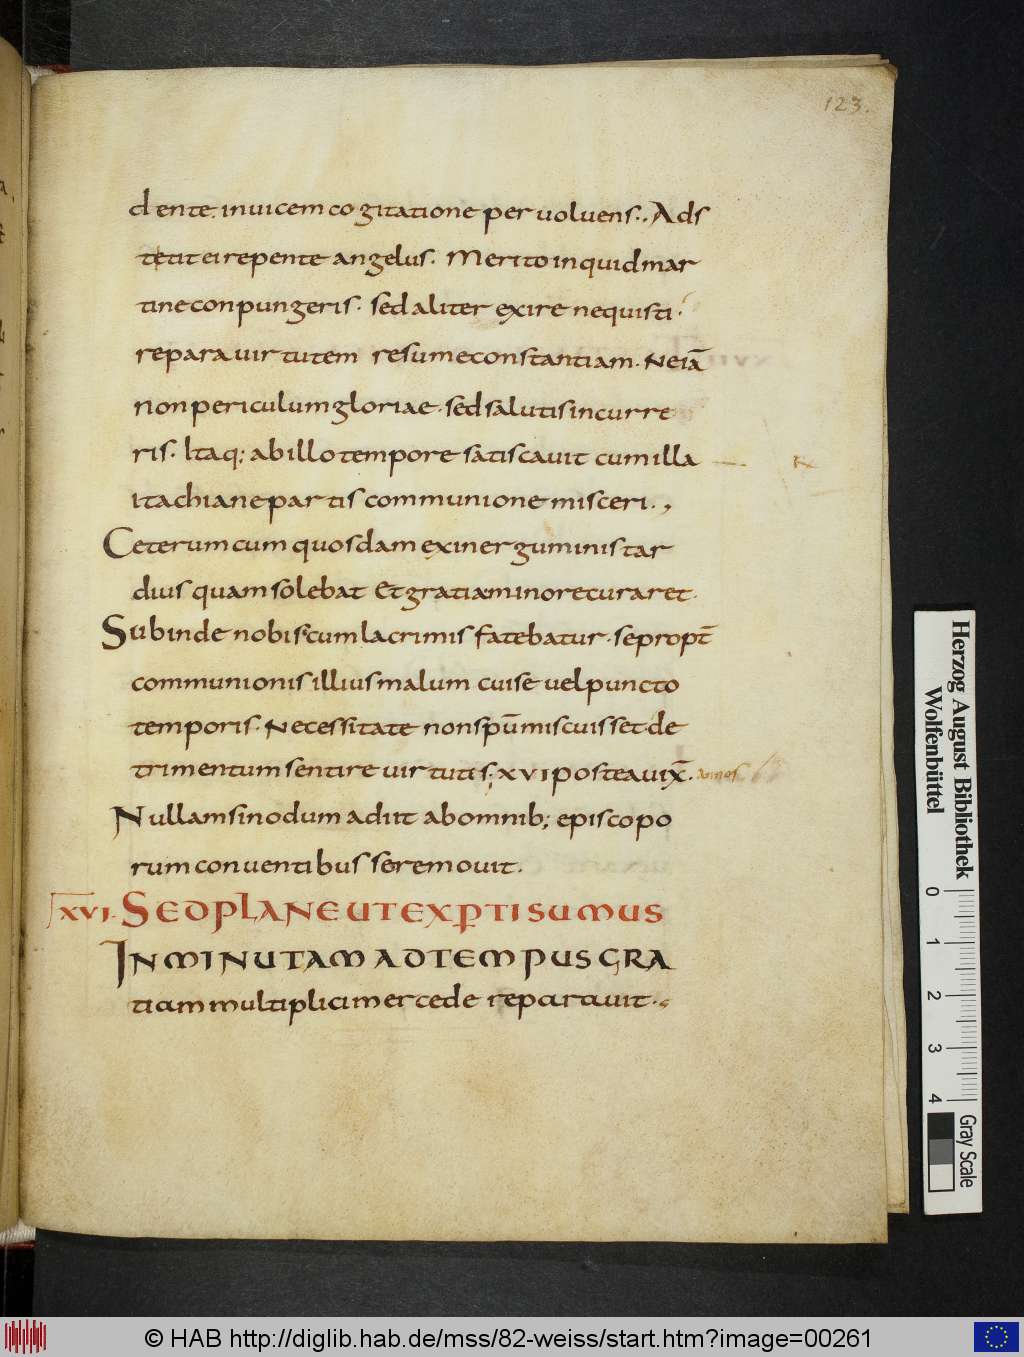 123.
dente. invicem cogitatione pervoluens. Ads
tetit ei repente angelus. Merito inquid mar
tine conpungeris. sed aliter exire nequisti.
repara uirtutem resume constantiam. Ne iā
non periculum gloriae. sed salutis incurre
ris. Itaq; ab illo tempore satis cavit cum illa
itachiane partis communione misceri.,
Ceterum cum quosdam ex inerguminis tar
dius quam solebat Et gratia minore curaret.
Subinde nobiscum lacrimis fatebatur. se propt̄
communionis illius malum cui se uel puncto
temporis. Necessitate non spū miscuisset. de
trimentum sentire uirtutis. xvi postea vix̄. annos
Nullam sinodum adiit ab omnib; episcopo
rum conventibus se removit.
xvi. SED PLANE UT EXPTI SUMUS
INMINUTAM AD TEMPUS GRA
tiam multiplici mercede reparavit.
Herzog August Bibliothek
Wolfenbüttel
0 1 2 3 4
Gray Scale
© HAB http://diglib.hab.de/mss/82-weiss/start.htm?image=00261